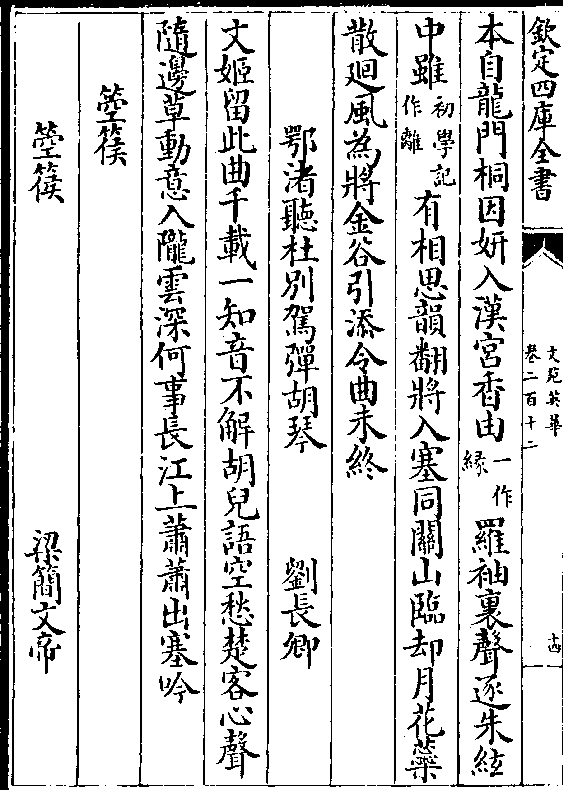 欽定四庫全書
文苑英華
卷二百十二
十四
本自龍門桐因妍入漢宮香由一作緣羅袖裏聲逐朱絃
中雖初學記作離有相思韻翻將入塞同關山臨却月花蘂
散廻風為將金谷引添令曲未終
鄂渚聽杜別駕彈胡琴 劉長卿
文姬留此曲千載一知音不解胡兒語空愁楚客心聲
隨邊草動意入隴雲深何事長江上蕭蕭出塞吟
箜篌
箜篌 梁簡文帝